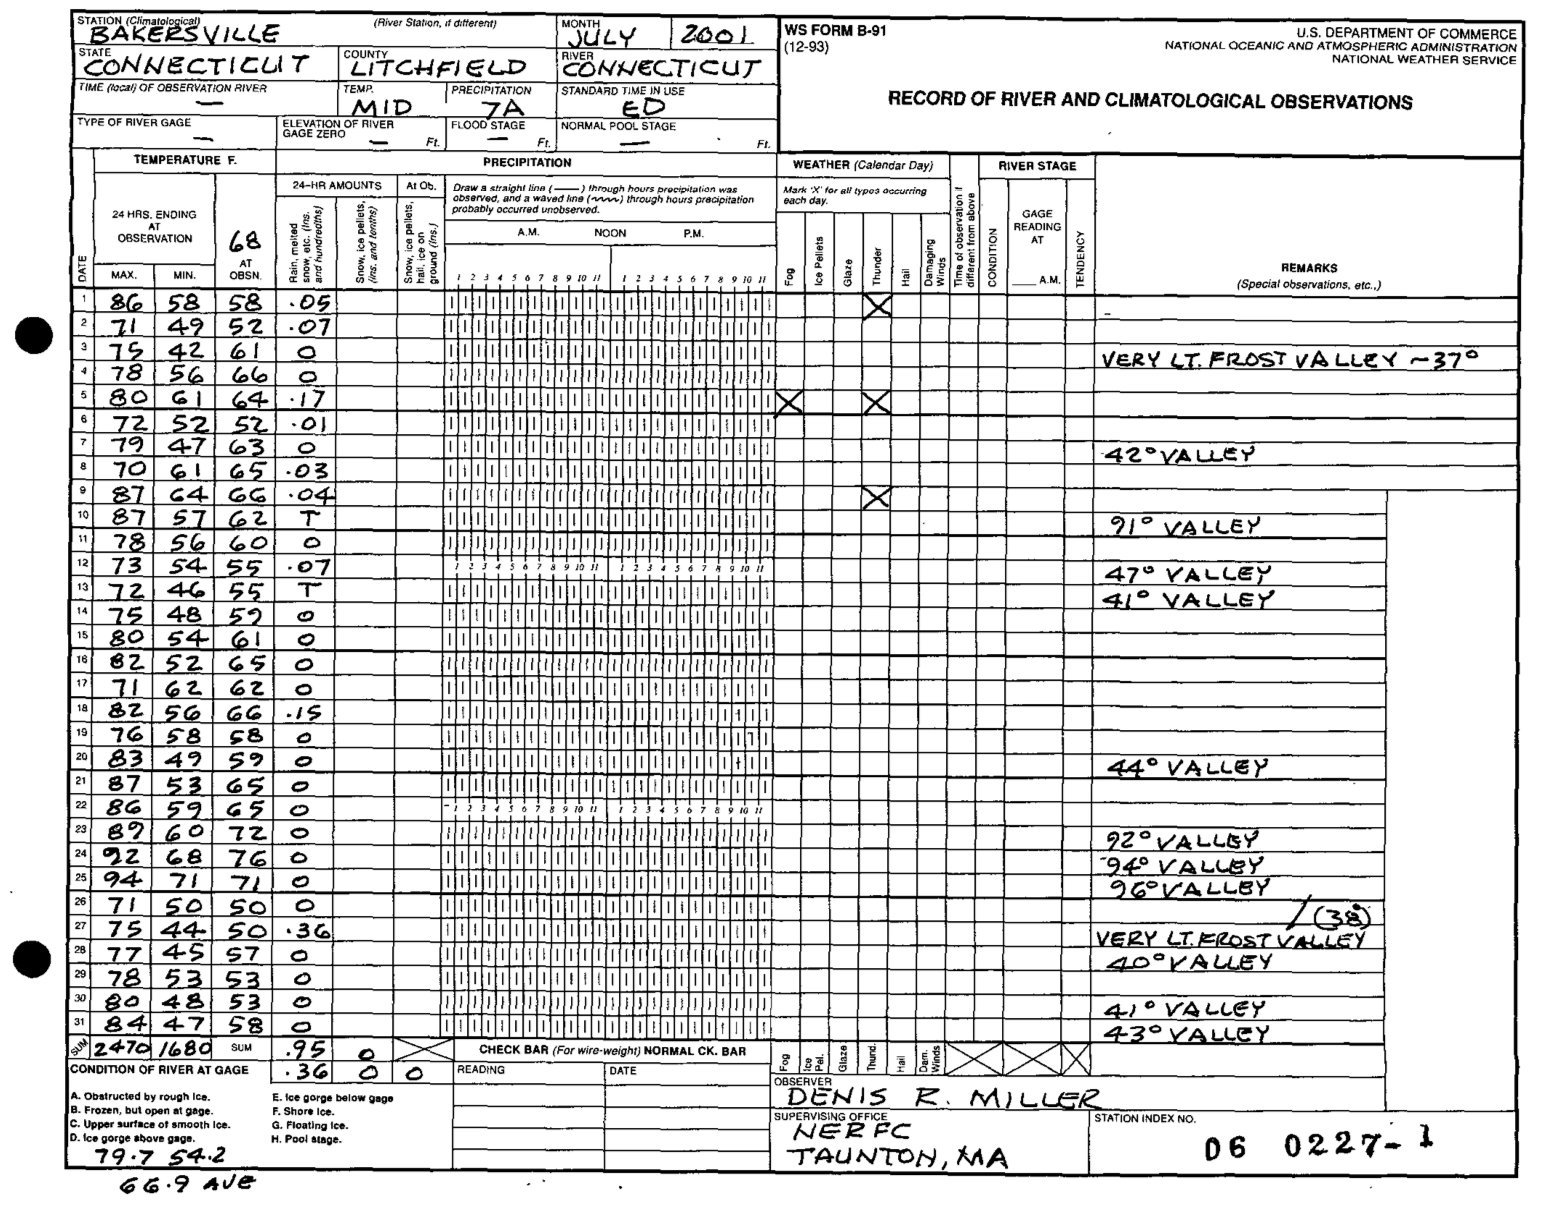 STATION (Climatological) (River Station, if different) MONTH
BAKERSVILLE JULY 2001
STATE COUNTY RIVER
CONNECTICUT LITCHFIELD CONNECTICUT
TIME (local) OF OBSERVATION RIVER TEMP. PRECIPITATION STANDARD TIME IN USE
— MID 7A ED
TYPE OF RIVER GAGE ELEVATION OF RIVER GAGE ZERO FLOOD STAGE NORMAL POOL STAGE
— — Ft. — Ft. — Ft.
WS FORM B-91
(12-93)
U.S. DEPARTMENT OF COMMERCE
NATIONAL OCEANIC AND ATMOSPHERIC ADMINISTRATION
NATIONAL WEATHER SERVICE
RECORD OF RIVER AND CLIMATOLOGICAL OBSERVATIONS
TEMPERATURE F. PRECIPITATION WEATHER (Calendar Day) RIVER STAGE
24 HRS. ENDING AT OBSERVATION
68 AT OBSN.
24-HR AMOUNTS At Ob.
Draw a straight line (——) through hours precipitation was
observed, and a waved line (~~~) through hours precipitation
probably occurred unobserved.
Mark 'X' for all types occurring
each day.
A.M. NOON P.M.
DATE MAX. MIN.
Rain, melted snow, etc. (Ins. and hundredths)
Snow, ice pellets, (ins. and tenths)
Snow, ice pellets, hail, ice on ground (Ins.)
1 2 3 4 5 6 7 8 9 10 11 1 2 3 4 5 6 7 8 9 10 11
Fog Ice Pellets Glaze Thunder Hail Damaging Winds
Time of observation if different from above
CONDITION
GAGE READING AT ____ A.M.
TENDENCY
REMARKS
(Special observations, etc.,)
1 86 58 58 .05 X -
2 71 49 52 .07
3 75 42 61 0 VERY LT. FROST VALLEY ~37°
4 78 56 66 0
5 80 61 64 .17 X X
6 72 52 52 .01
7 79 47 63 0 42° VALLEY
8 70 61 65 .03
9 87 64 66 .04 X
10 87 57 62 T 91° VALLEY
11 78 56 60 0
12 73 54 55 .07 1 2 3 4 5 6 7 8 9 10 11 1 2 3 4 5 6 7 8 9 10 11 47° VALLEY
13 72 46 55 T 41° VALLEY
14 75 48 59 0
15 80 54 61 0
16 82 52 65 0
17 71 62 62 0
18 82 56 66 .15
19 76 58 58 0
20 83 49 59 0 44° VALLEY
21 87 53 65 0
22 86 59 65 0 1 2 3 4 5 6 7 8 9 10 11 1 2 3 4 5 6 7 8 9 10 11
23 89 60 72 0 92° VALLEY
24 92 68 76 0 94° VALLEY
25 94 71 71 0 96° VALLEY
26 71 50 50 0 /(38°)
27 75 44 50 .36 VERY LT. FROST VALLEY
28 77 45 57 0 40° VALLEY
29 78 53 53 0
30 80 48 53 0 41° VALLEY
31 84 47 58 0 43° VALLEY
SUM 2470 1680 SUM .95 0 CHECK BAR (For wire-weight) NORMAL CK. BAR Fog Ice Pel. Glaze Thund. Hail Dam. Winds
CONDITION OF RIVER AT GAGE .36 0 0 READING DATE
A. Obstructed by rough ice. E. Ice gorge below gage
B. Frozen, but open at gage. F. Shore ice.
C. Upper surface of smooth ice. G. Floating ice.
D. Ice gorge above gage. H. Pool stage.
79.7 54.2
66.9 AVE
OBSERVER
DENIS R. MILLER
SUPERVISING OFFICE
NERFC
TAUNTON, MA
STATION INDEX NO.
06 0227-1